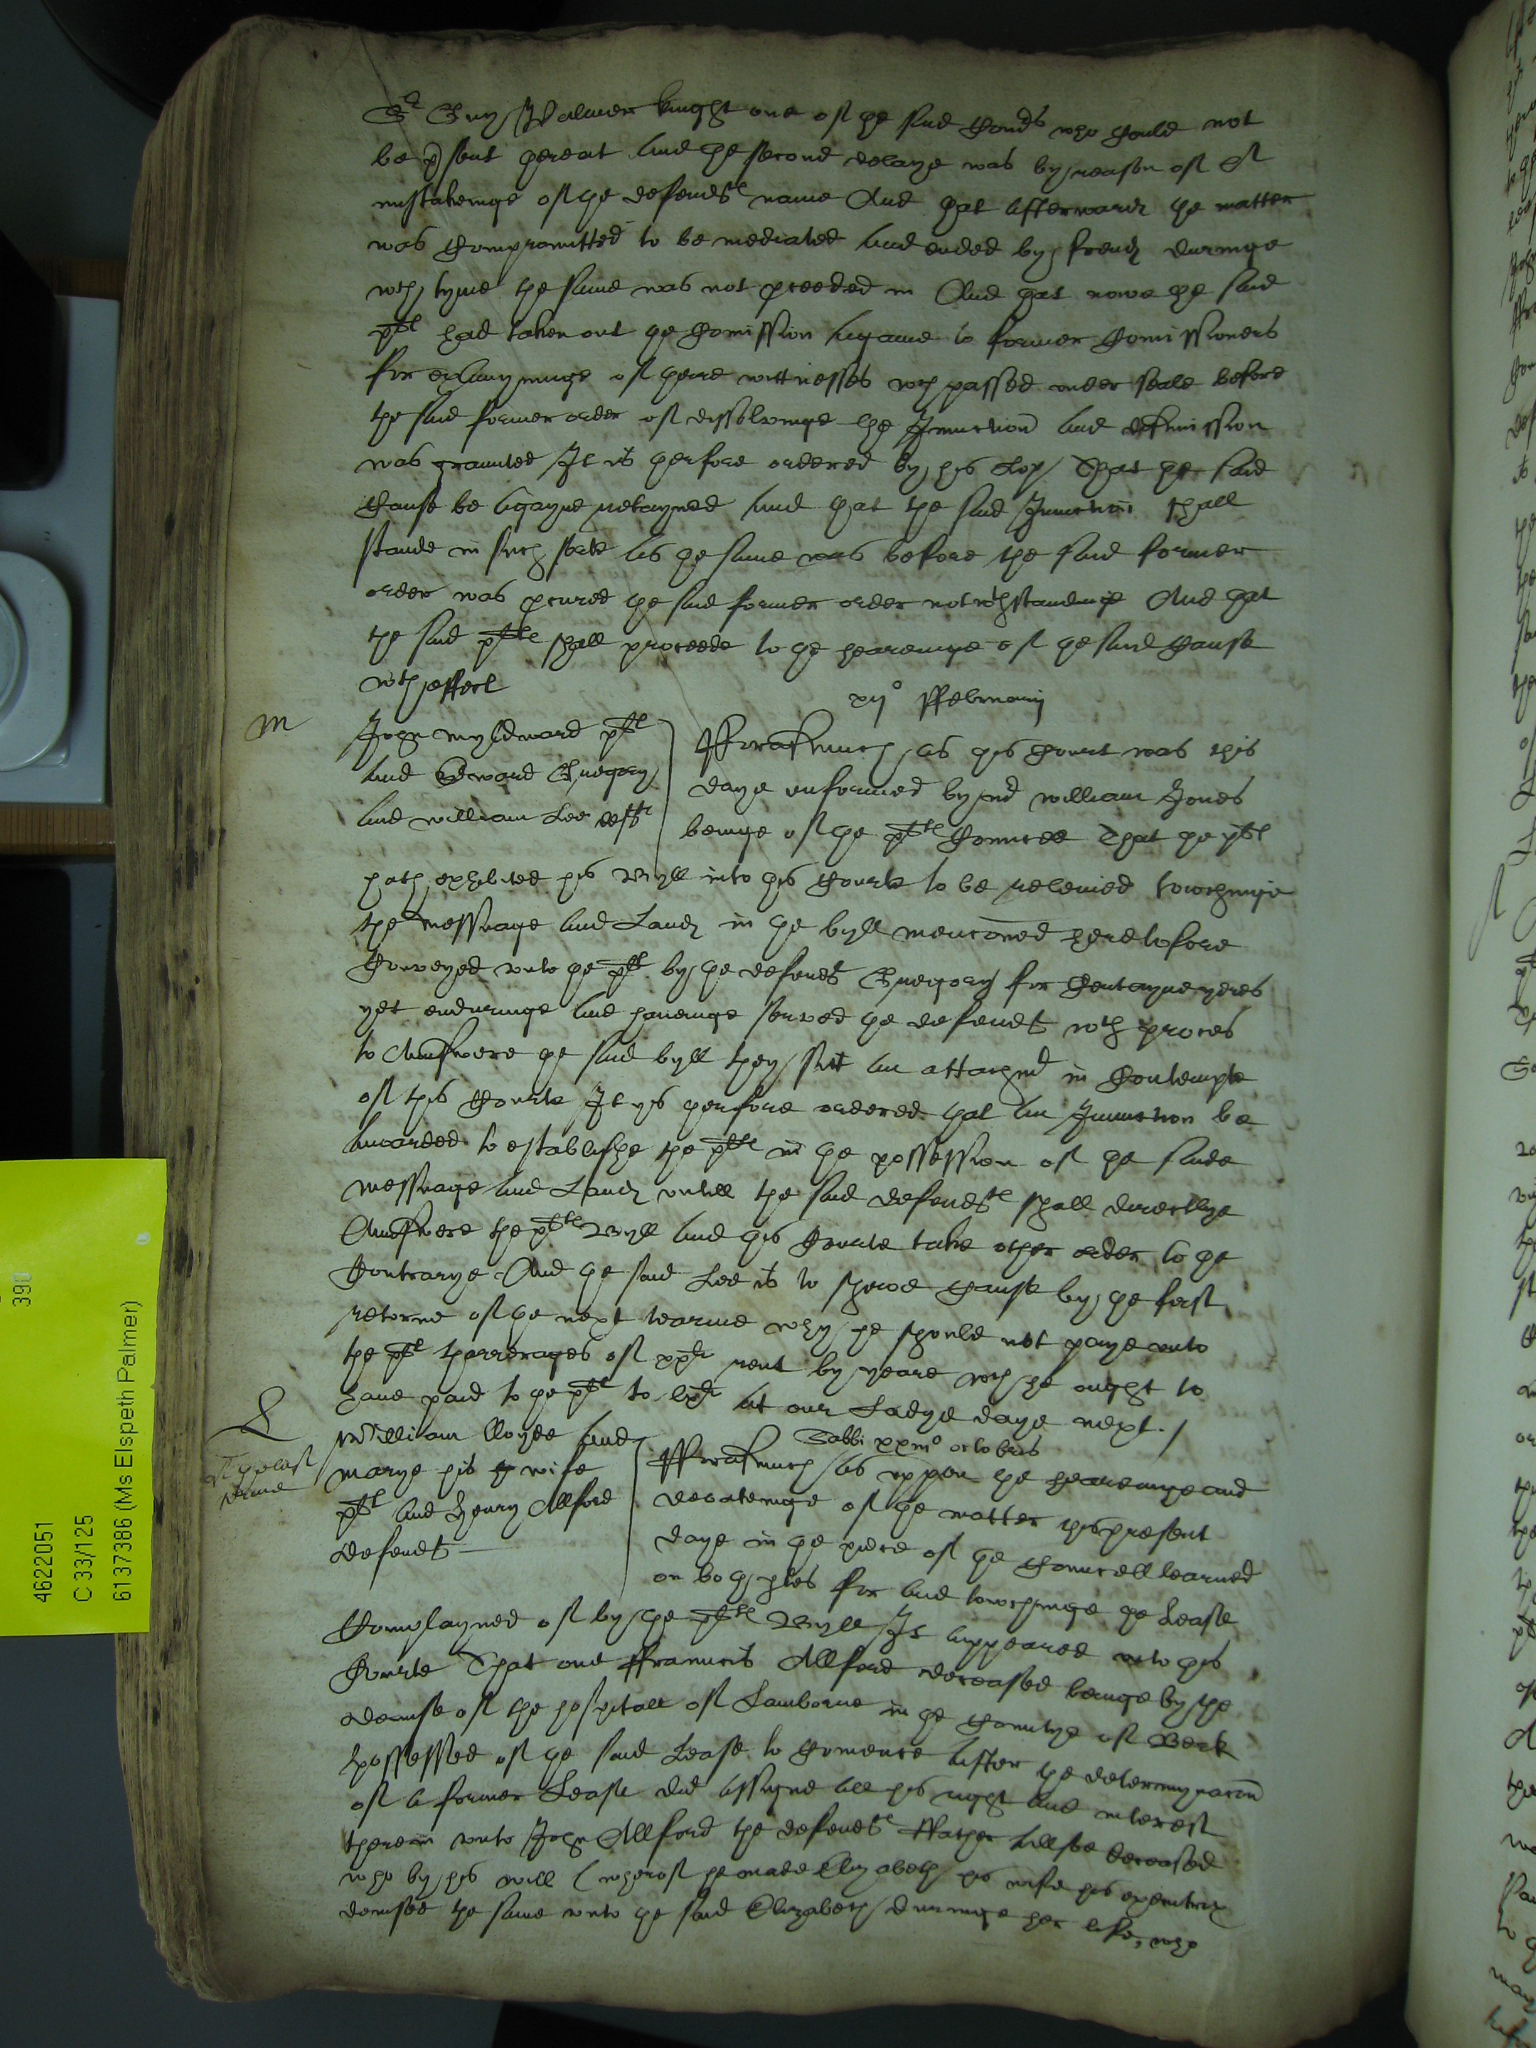 Palmer knight one of the said who could not
be p̱sent thereat And the second delaye was by reason of
mistakeinge of the defendtes name And that afterwardes the matter
was Compromitted to be mediated And ended by frendes duringe
wch tyme the same was not p̱ceeded in And that nowe the said
pltes had taken out the Comission agayne to former Comissioners
for examynynge of there wittnesses wch passed under seale before
the said former order of dissolvinge the Iniunction And dismission
was graunted It is therfore ordered by his Lop̱ That the said
Cause be agayne retayned And that the said Iniunction shall
stande in such sorte as the same was before the said former
order was p̱cured the said former order notwthstandinge And that
the said pltes shall proceede to the heareinge of the said Cause
wth effect
Februarij
M
John Myldward plt
And Edward Gregory
And William Lee defts
Forasmuch as this Court was this
daye enformed by mr William Jones
beinge of the pltes Councell That the plt
hath exhibited his Byll into this Courte to be releived towchinge
the messuage and Landes in the byll mencõned heretofore
Conveyed unto the plt by the defendt Gregory for Certayne yeres
yet enduringe And haveinge served the defendtes wth proces
to Aunswere the said byll they sitt an attachmt in Contempte
of this Courte It ys therfore ordered that an Iniunction be
awarded to establishe the plt in the possession of the saide
messuage and Landes untill the said defendtes shall directlye
Aunswere the pltes Byll and this Courte take other order to the
Contrarye And the said Lee is to shewe Cause by the first
retorne of the next tearme why he should not paye unto
the plt tharrerages of rent by yeare wch he ought to
have paid to the plt to at our Ladye daye next./
L
William lloyde And
Marye his wife
plts And Henry Allford
defendt
Sabbi xxiiio octobris
Forasmuch as uppon the heareinge and
debateinge of the matter this present
daye in the p̱sence of the Councell learned
on both p̱tes for and towchinge the Lease
Complayned of by the pltes Byll It appeared unto this
Courte That one Frauncis Allford deceased beinge by the
demise of the hospitall of Lamborne in the Countye of Berk
possessed of the said Lease to Comence after the determynacõn
of a former Lease did assigne all his right and interest
therein unto John Allford the defendtes Father allsoe deceased
who by his will (wherof he made Elizabeth his wife his executrix
demised the same unto the said Elizabeth duringe her life, who
4622051
C 33/125
6137386 (Ms Elspeth Palmer)
390